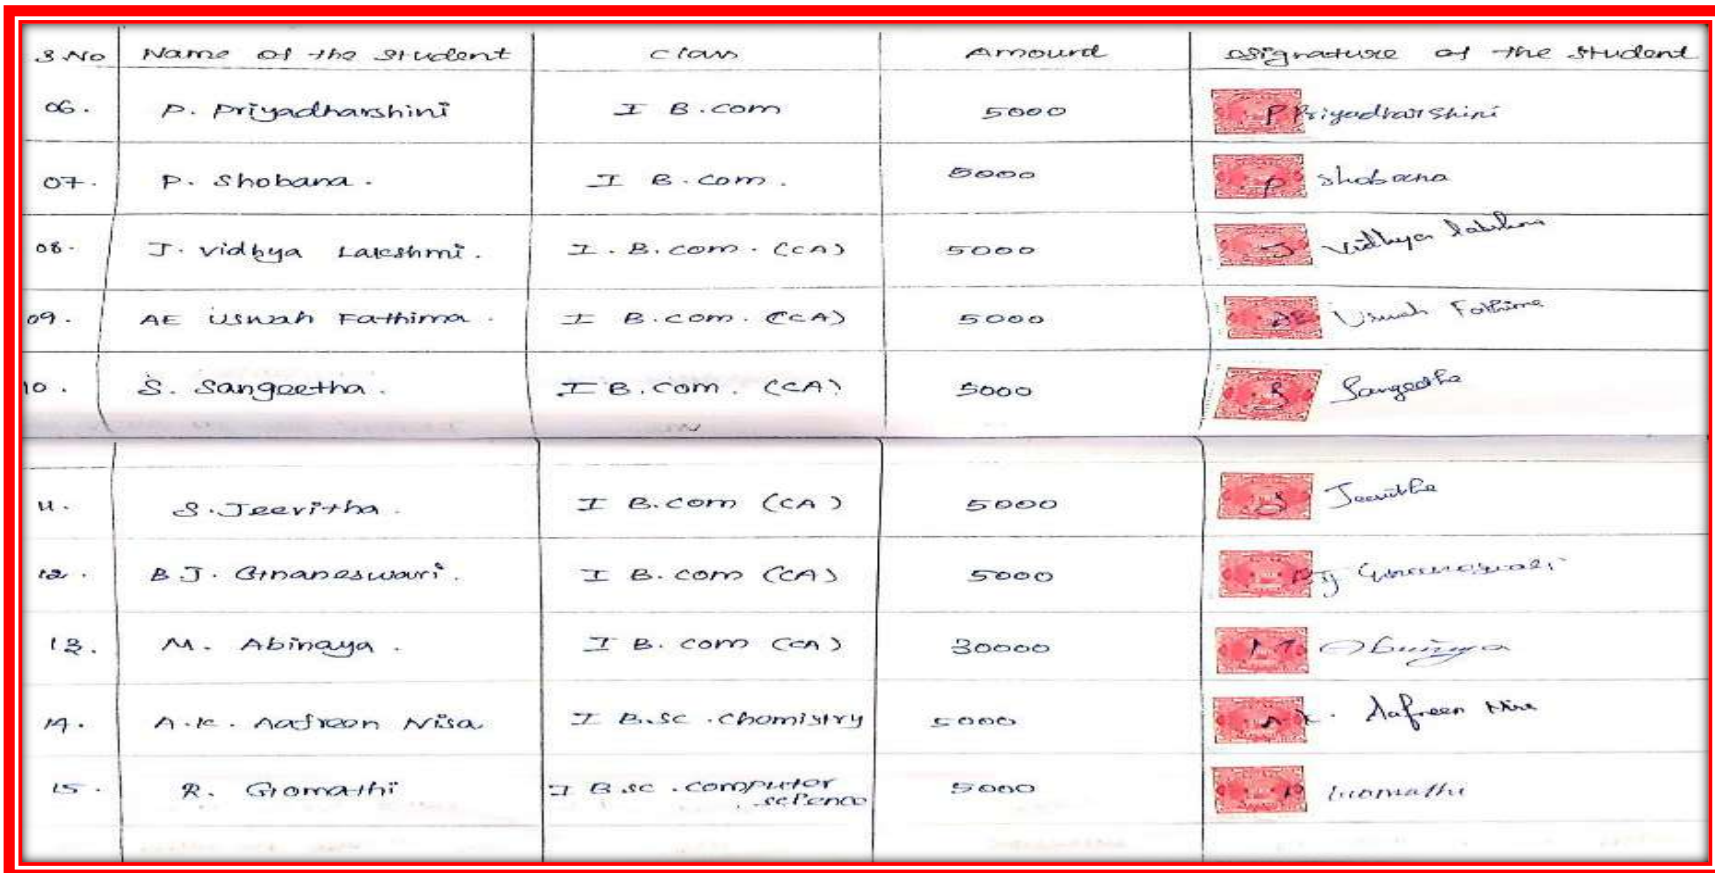 S.No Name of the student Class Amound Signature of the student
06. P. Priyadharshini I B.com 5000 P Priyadharshini
07. P. Shobana. I B.com. 5000 P Shobana
08. J. Vidhya Lakshmi. I. B.com. (CA) 5000 J Vidhya Lakshmi
09. AE Uswah Fathima. I B.com. (CA) 5000 AE Uswah Fathima
10. S. Sangeetha. I B.com. (CA) 5000 S Sangeetha
11. S. Jeevitha. I B.com (CA) 5000 S Jeevitha
12. B J. Gnaneswari. I B.com (CA) 5000 BJ Gnaneswari
13. M. Abinaya. I B.com (CA) 30000 M Abinaya
14. A.K. Aafreen Nisa I B.sc. Chemistry 5000 A.K. Aafreen Nisa
15. R. Gomathi I B.sc. computer 5000 R Gomathi
science